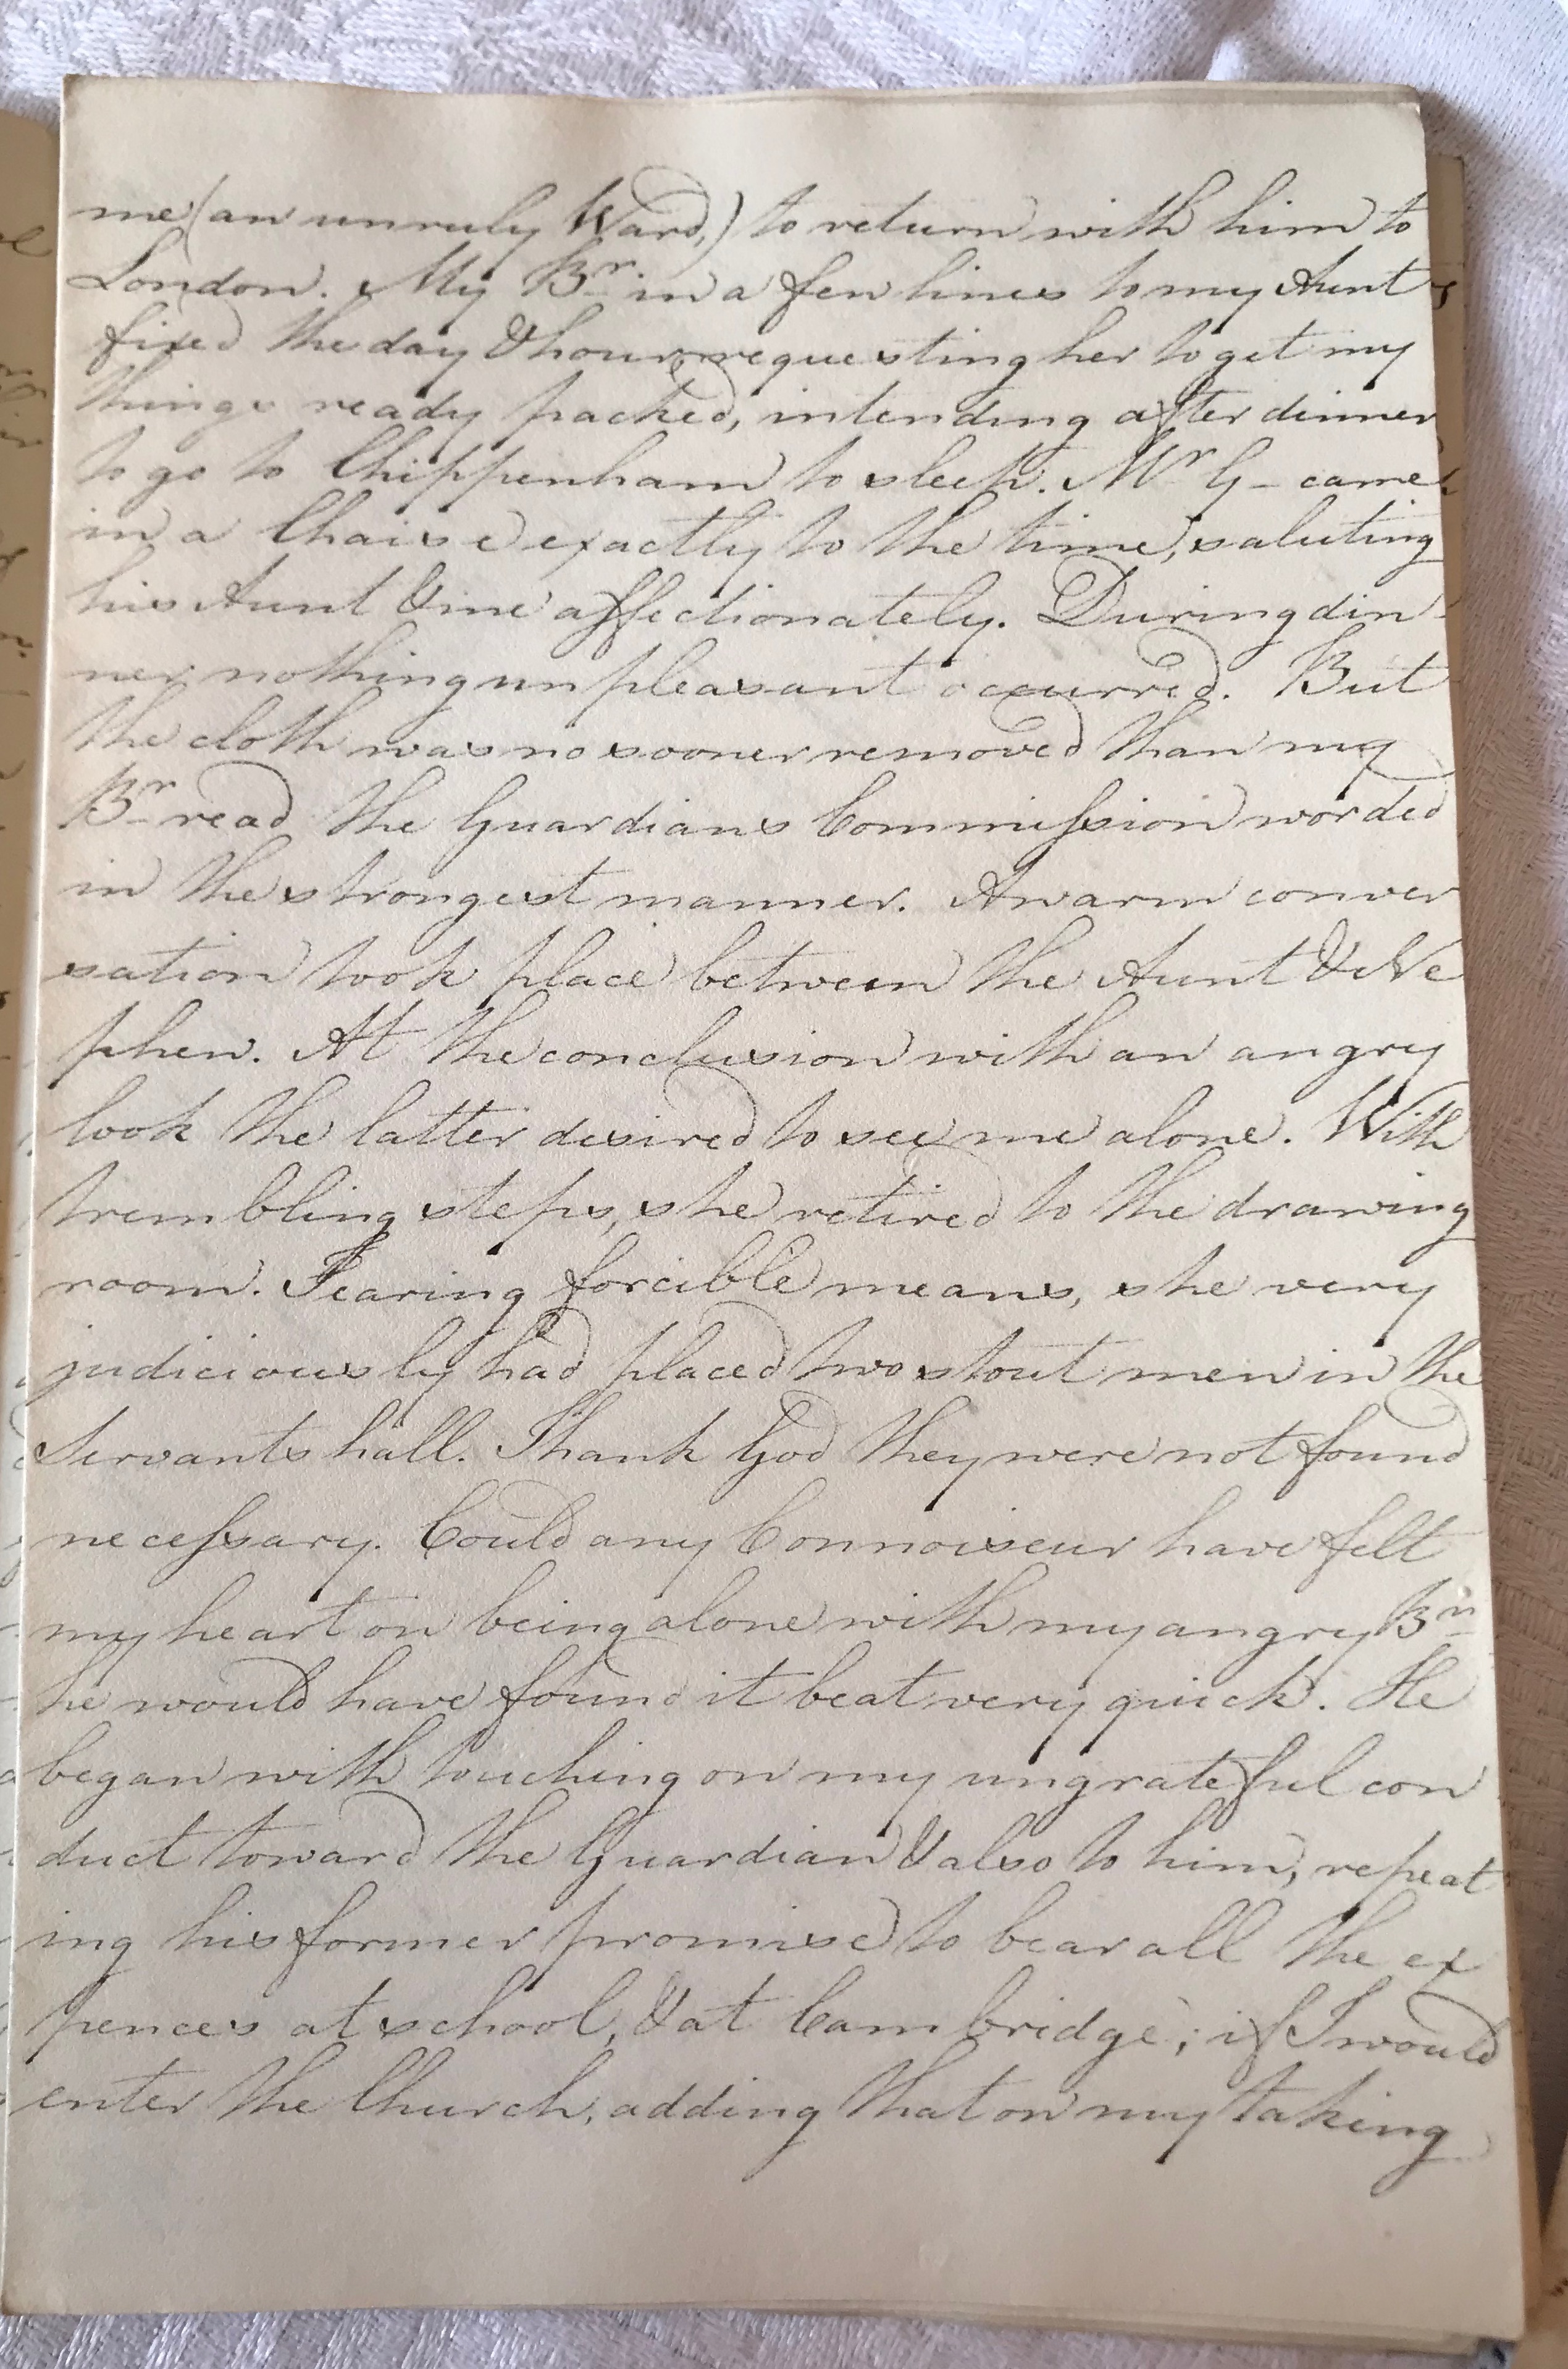 me (an unruly Ward,) to return with him to
London. My Br. in a few lines to my Aunt
fixed the day & hour requesting her to get my
things ready packed, intending after dinner
to go to Chippenham to sleep. Mr G- came
in a Chaise exactly to the time, saluting
his Aunt & me affectionately. During din
ner nothing unpleasant occurred. But
the cloth was no sooner removed than my
Br. read the Guardians Commission worded
in the strongest manner. A warm conver
sation took place between the Aunt & Ne
phew. At the conclusion with an angry
look the latter desired to see me alone. With
trembling steps, she retired to the drawing
room. Fearing forcible means, she very
judiciously had placed two stout men in the
Servants hall. Thank God they were not found
necessary. Could any Connoiseur have felt
my heart on being alone with my angry Br.
he would have found it beat very quick. He
began with touching on my ungrateful con
duct toward the Guardian & also to him, repeat
ing his former promise to bear all the ex
pences at school, & at Cambridge; if I would
enter the Church, adding that on my taking